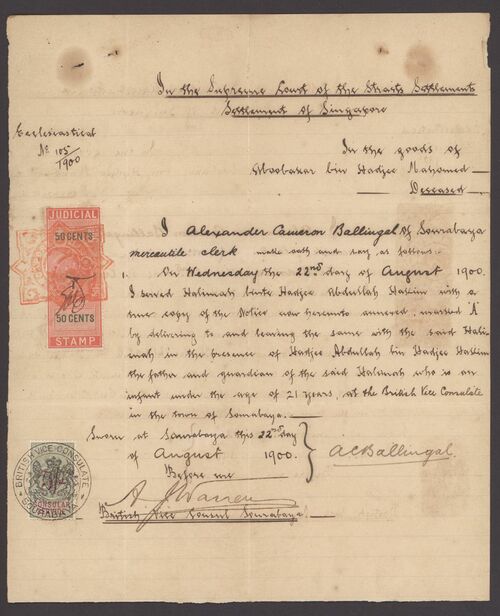 In the Supreme Court of the Straits Settlements
Settlement of Singapore
Ecclesiastical
No 105/1900
In the goods of
Aboobakar bin Hadjee Mahomed
Deceased
JUDICIAL
50 CENTS
50 CENTS
STAMP
I Alexander Cameron Ballingal of Sourabaya
mercantile clerk make oath and say as follows:
1. On Wednesday the 22nd day of August 1900.
I served Halimah binte Hadjee Abdullah Hassim with a
true copy of the Notice now hereunto annexed, marked "A"
by delivering to and leaving the same with the said Hali-
mah in the presence of Hadjee Abdullah bin Hadjee Hassim
the father and guardian of the said Halimah who is an
infant under the age of 21 years, at the British Vice Consulate
in the town of Sourabaya.
Sworn at Sourabaya this 22nd day
of August 1900.
Before me
A C Ballingal.
A J Warren
British Vice Consul Sourabaya
BRITISH VICE CONSULATE
SOURABAYA
CONSULAR